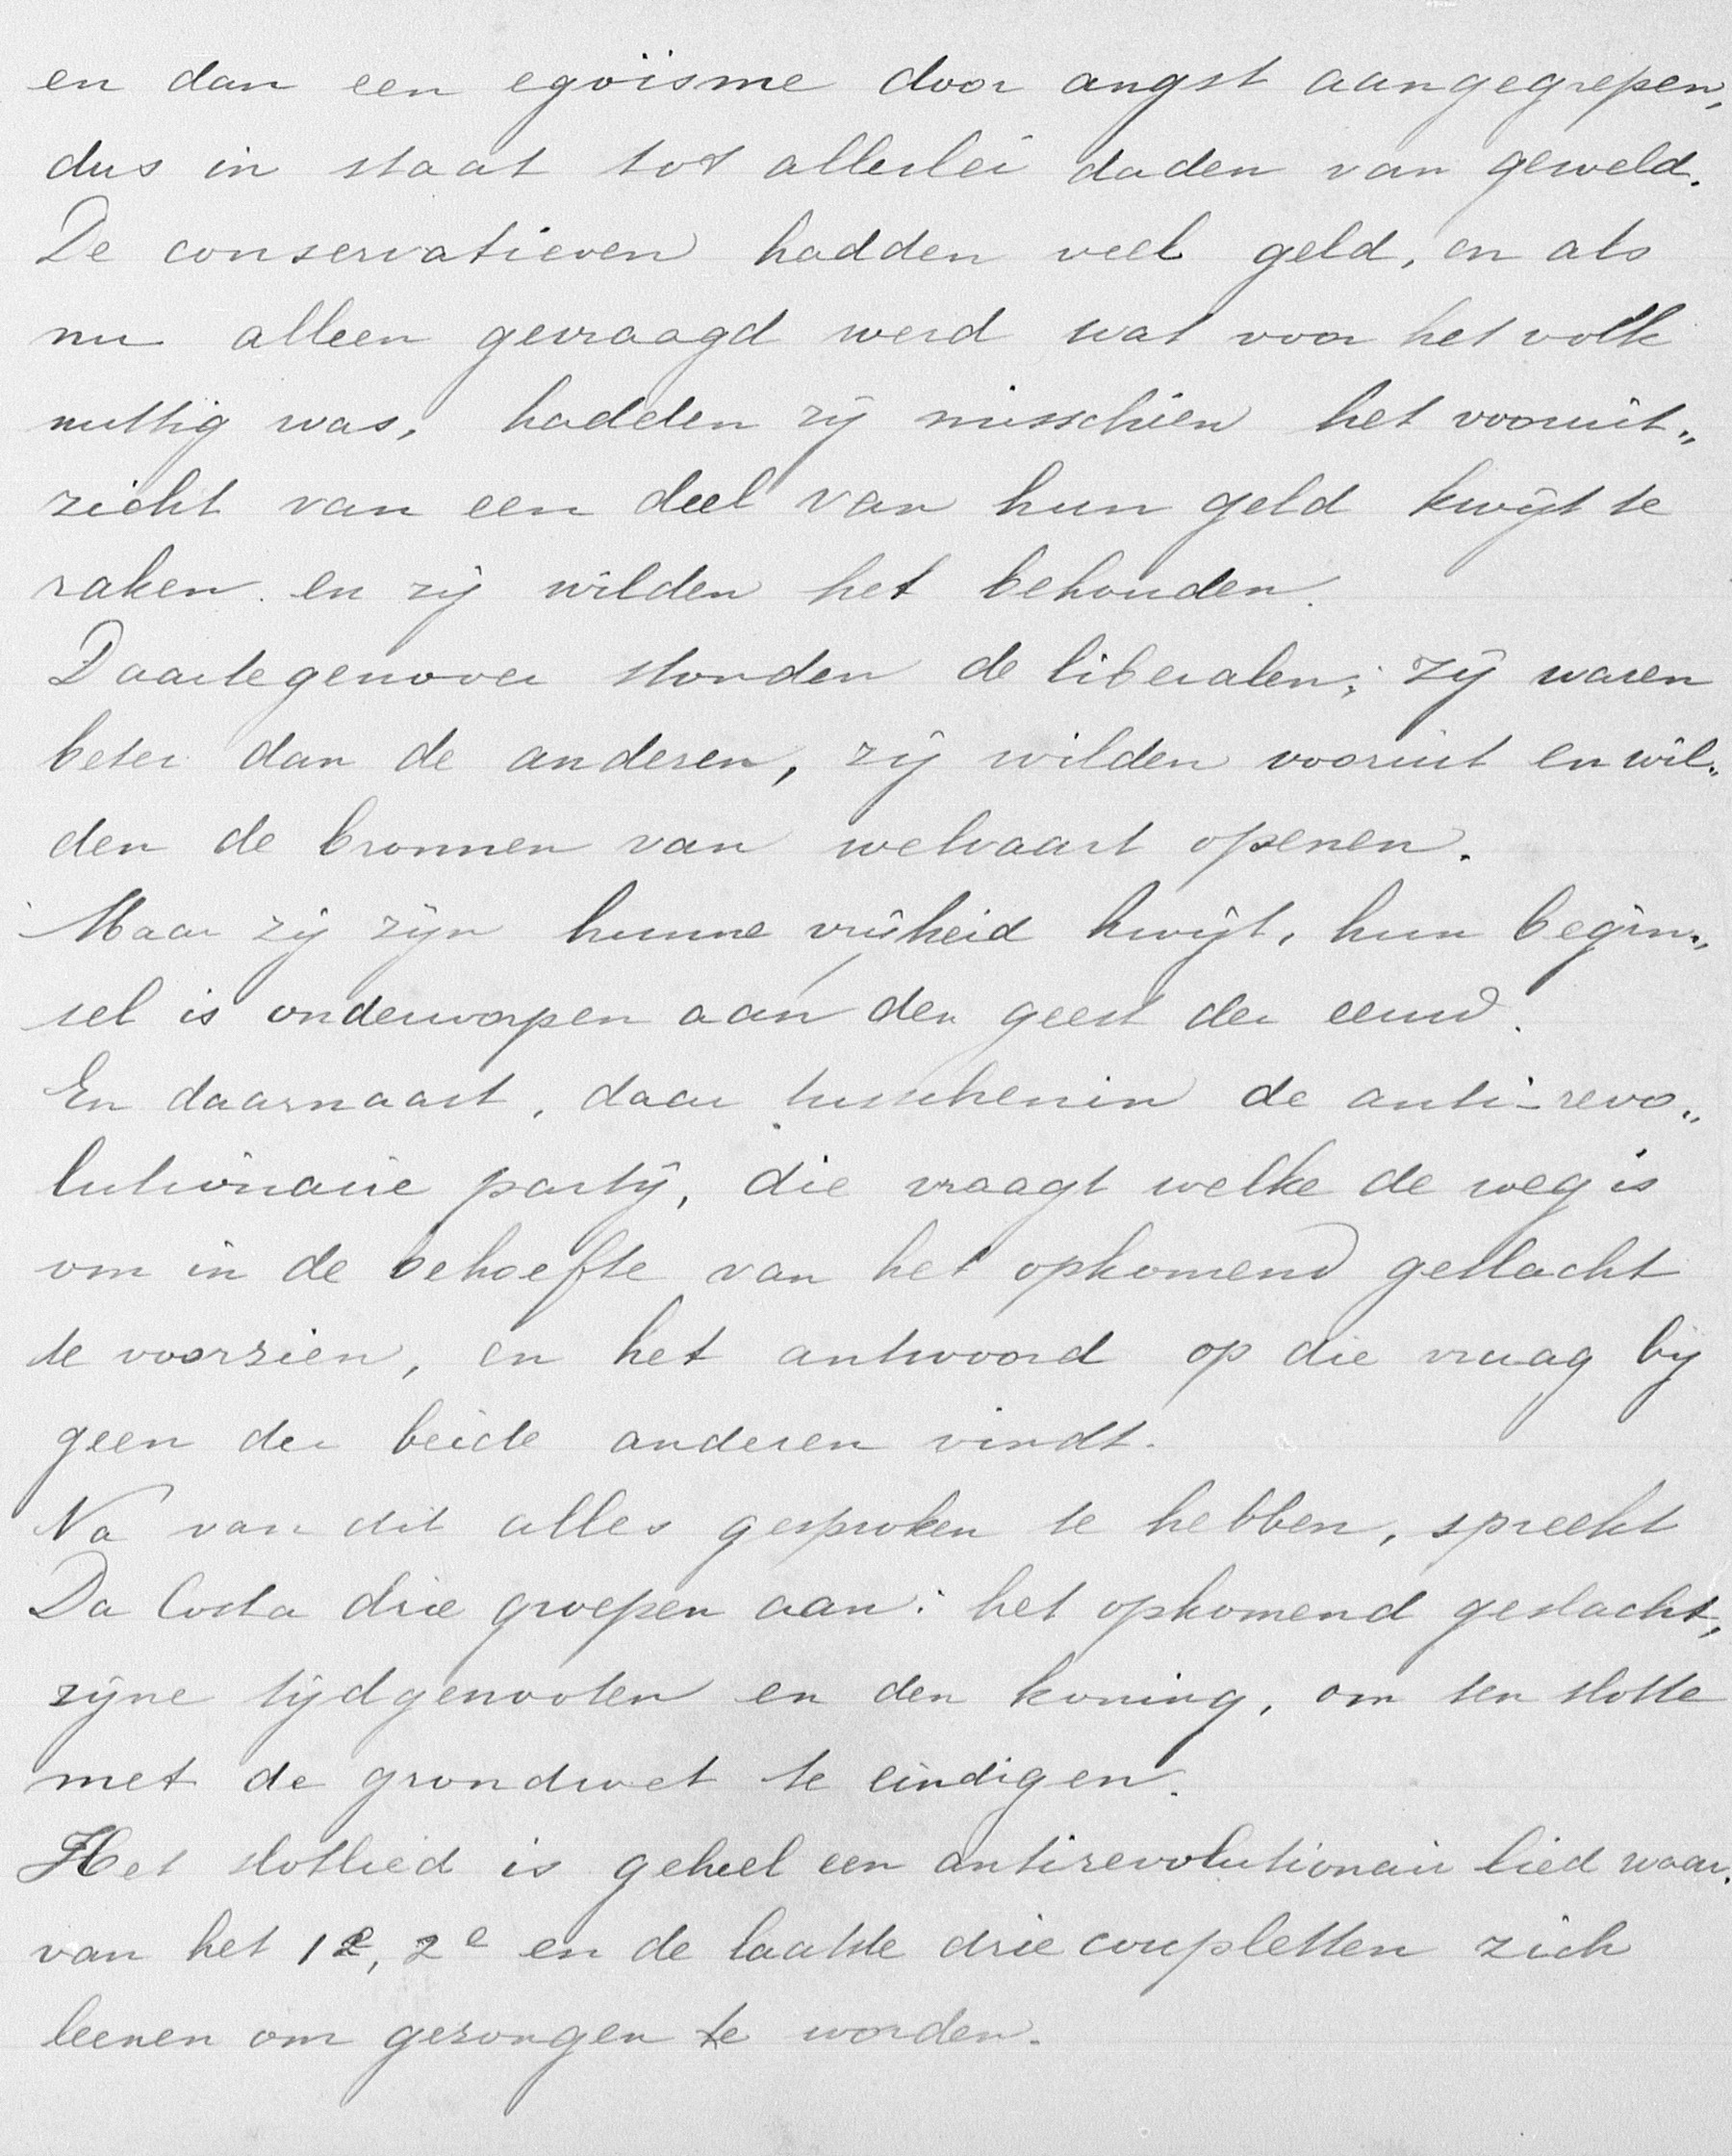 en dan een egoïsme door angst aangegrepen,
dus in staat tot allerlei daden van geweld.
De conservatieven hadden veel geld, en als
nu alleen gevraagd werd wat voor het volk
nuttig was, hadden zij misschien het vooruit„
zicht van een deel van hun geld kwijt te
raken en zij wilden het behouden.
Daartegenover stonden de liberalen; zij waren
beter dan de anderen, zij wilden vooruit en wil„
den de bronnen van welvaart openen.
Maar zij zijn hunne vrijheid kwijt, hun begin„
sel is onderworpen aan den geest der eeuw.
En daarnaast, daar tusschenin de anti-revo„
lutionaire partij, die vraagt welke de weg is
om in de behoefte van het opkomend geslacht
te voorzien, en het antwoord op die vraag bij
geen der beide anderen vindt.
Na van dit alles gesproken te hebben, spreekt
Da Costa drie groepen aan: het opkomend geslacht,
zijne tijdgenooten en den koning, om ten slotte
met de grondwet te eindigen.
Het slotlied is geheel een antirevolutionair lied waar„
van het 1e, 2e en de laatste drie coupletten zich
leenen om gezongen te worden.